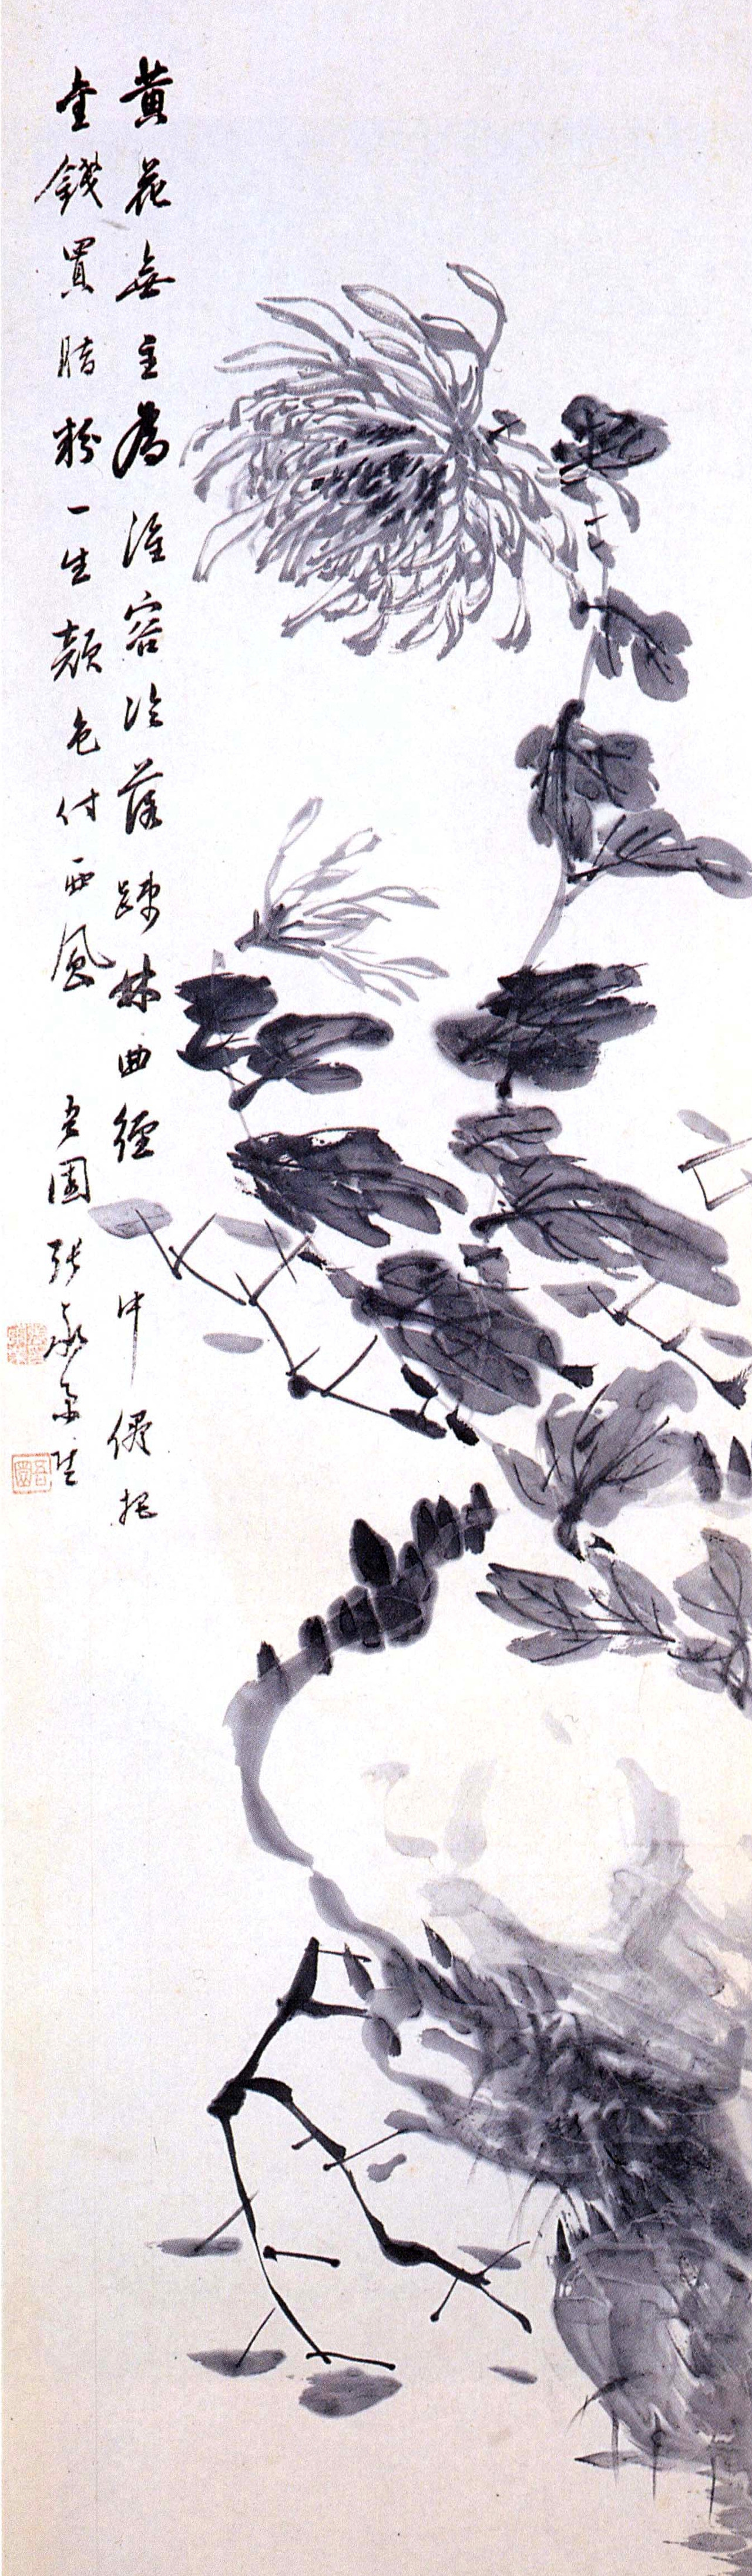 黄花無主為誰容冷落疎林曲徑中儘把
金錢買脂粉一生顏色付西風 吾園張永